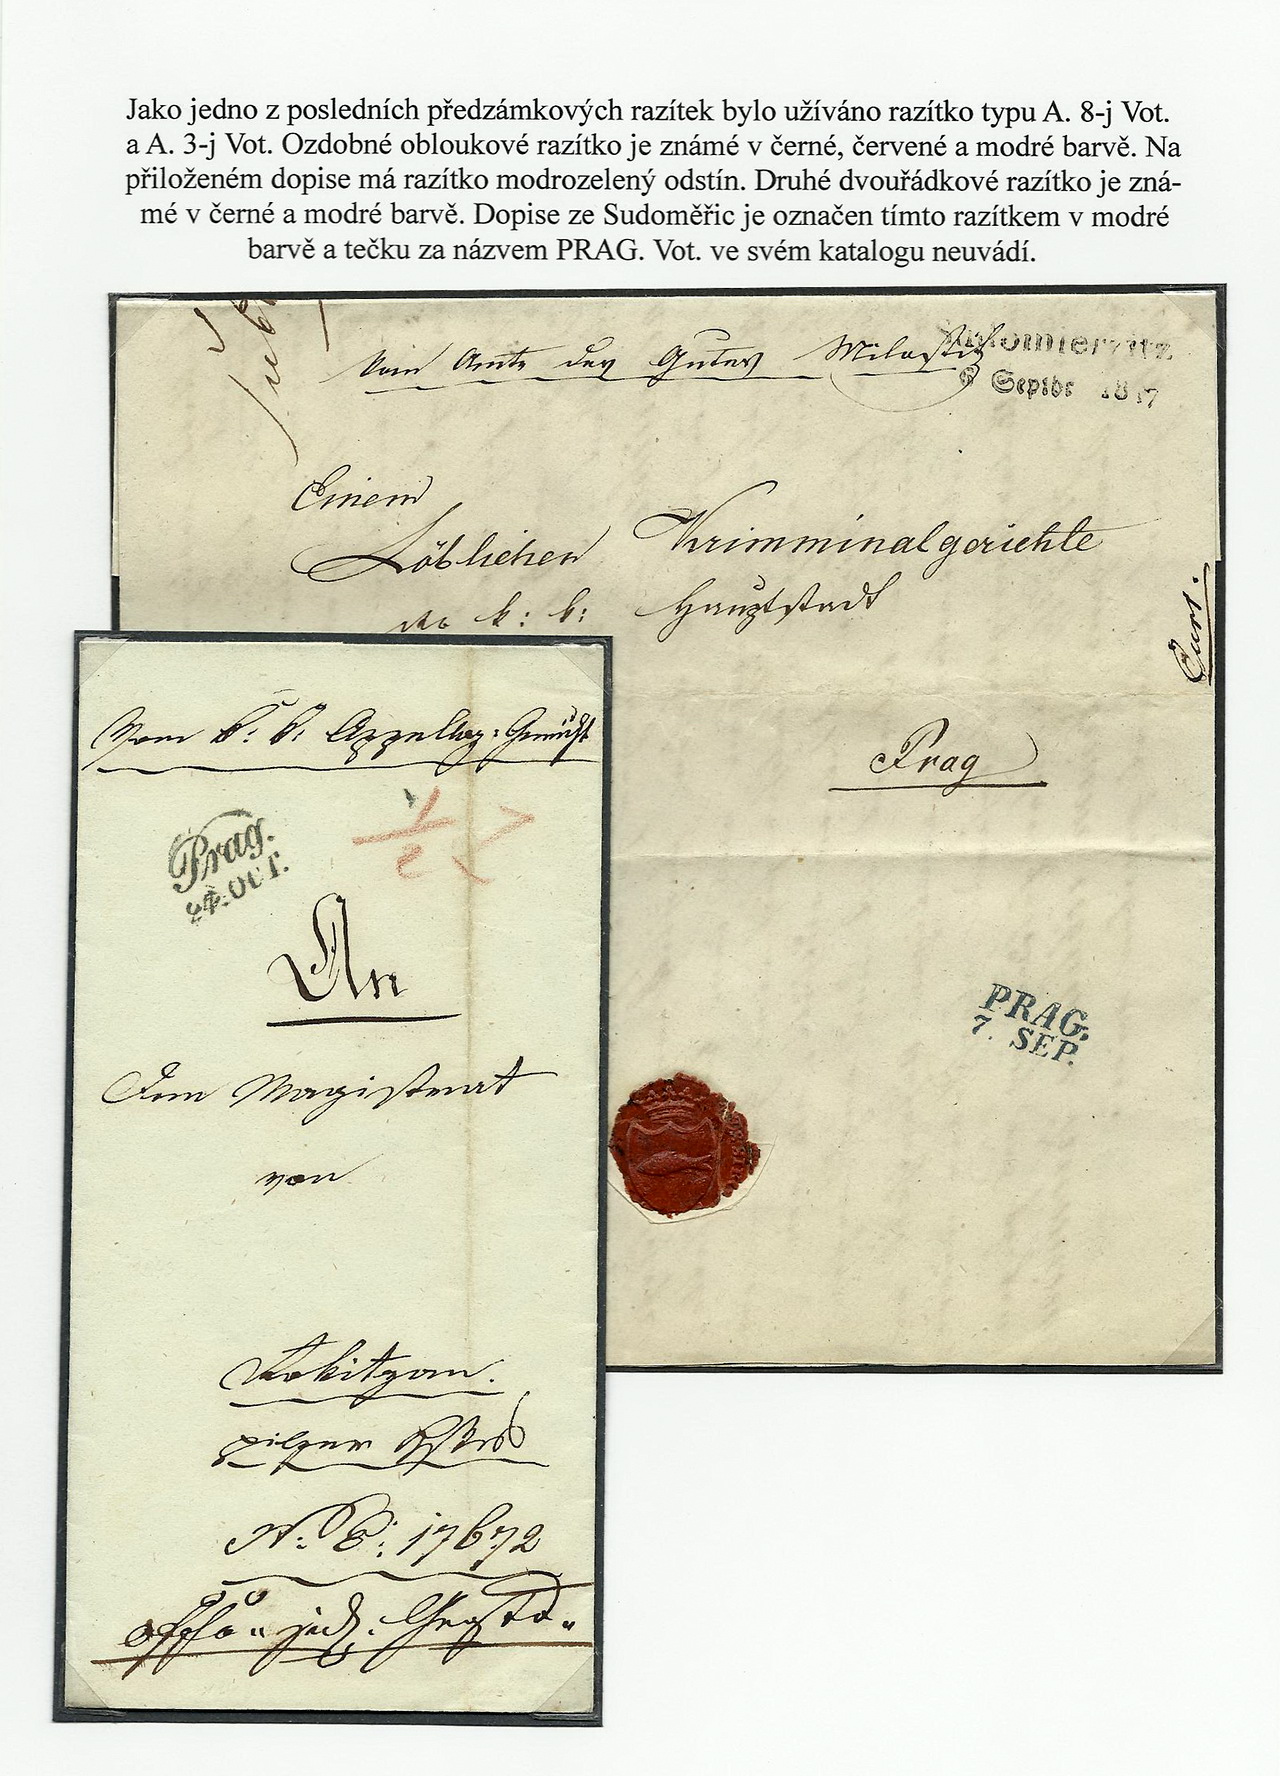 Jako jedno z posledních předzámkových razítek bylo užíváno razítko typu A. 8-j Vot.
a A. 3-j Vot. Ozdobné obloukové razítko je známé v černé, červené a modré barvě. Na
přiloženém dopise má razítko modrozelený odstín. Druhé dvouřádkové razítko je zná-
mé v černé a modré barvě. Dopise ze Sudoměřic je označen tímto razítkem v modré
barvě a tečku za názvem PRAG. Vot. ve svém katalogu neuvádí.
Vom Amte der Güter
Septbr
Einem
Löblichen Krimminalgerichte
Hauptstadt
Prag
PRAG.
7. SEP.
Vom k: k: Appellaz: Gericht
Prag.
24. OCT.
An
Magistrat
von
Rokitzan.
N. E: 17672